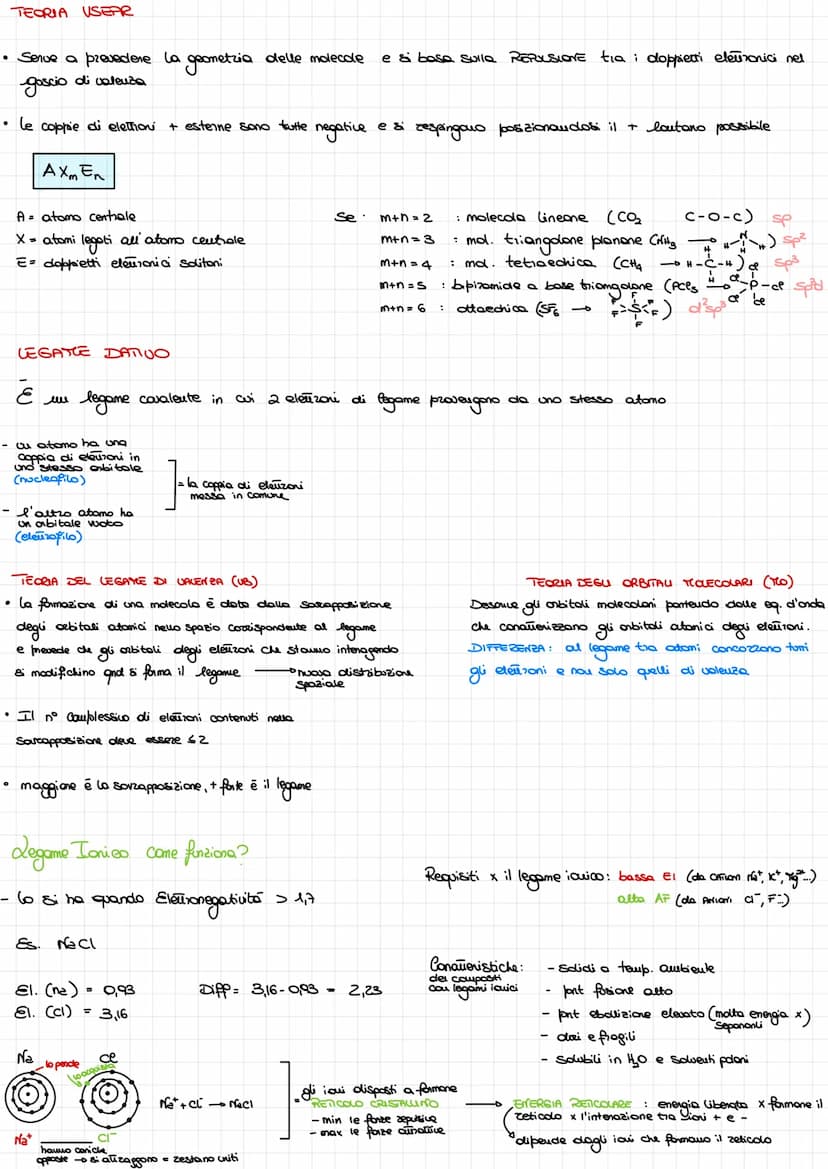 TEORIA VSEPR
• Serve a prevedere la geometria delle molecole e si basa sulla REPULSIONE tra i doppietti elettronici nel
guscio di valenza
• le coppie di elettroni + esterne sono tutte negative e si respingono posizionandosi il + lontano possibile
AXmEn
A = atomo centrale
X = atomi legati all'atomo centrale
E = doppietti elettronici solitari
Se · m+n = 2 : molecola lineare (CO₂ C-O-C) sp
m+n = 3 : mol. triangolare planare (NH₃ → H N H H) sp²
m+n = 4 : mol. tetraedrica (CH₄ → H-C-H H H) sp³
m+n = 5 : bipiramide a base triangolare (PCl₅ → Cl Cl P-Cl Cl Cl sp³d
m+n = 6 : ottaedrica (SF₆ → F F F S F F F) d²sp³
LEGAME DATIVO
È un legame covalente in cui 2 elettroni di legame provengono da uno stesso atomo
- un atomo ha una
coppia di elettroni in
uno stesso orbitale
(nucleofilo)
- l'altro atomo ha
un orbitale vuoto
(elettrofilo)
= la coppia di elettroni
messa in comune
TEORIA DEL LEGAME DI VALENZA (VB)
• la formazione di una molecola è data dalla sovrapposizione
degli orbitali atomici nello spazio corrispondente al legame
e prevede che gli orbitali degli elettroni che stanno interagendo
si modifichino qnd si forma il legame → nuova distribuzione
spaziale
• Il n° complessivo di elettroni contenuti nella
sovrapposizione deve essere ≤ 2
• maggiore è la sovrapposizione, + forte è il legame
TEORIA DEGLI ORBITALI MOLECOLARI (MO)
Descrive gli orbitali molecolari partendo dalle eq. d'onda
che caratterizzano gli orbitali atomici degli elettroni.
DIFFERENZA: al legame tra atomi concorrono tutti
gli elettroni e non solo quelli di valenza
Legame Ionico come funziona?
- lo si ha quando Elettronegatività > 1,7
Es. NaCl
El. (na) = 0,93
El. (Cl) = 3,16
Diff = 3,16 - 0,93 = 2,23
Requisiti x il legame ionico: bassa EI (da cationi Na⁺, K⁺, Mg²⁺..)
alta AF (da Anioni Cl⁻, F⁻)
Caratteristiche:
dei composti
con legami ionici
- solidi a temp. ambiente
- pnt fusione alto
- pnt ebollizione elevato (molta energia x)
separarli
- duri e fragili
- solubili in H₂O e solventi polari
Na lo perde Cl
lo acquista
Na⁺ Cl⁻
hanno cariche
opposte → si attraggono = restano uniti
Na⁺ + Cl⁻ → NaCl
= gli ioni disposti a formare
RETICOLO CRISTALLINO
- min le forze repulsive
- max le forze attrattive
→ ENERGIA RETICOLARE : energia liberata x formare il
reticolo x l'interazione tra ioni + e -
dipende dagli ioni che formano il reticolo